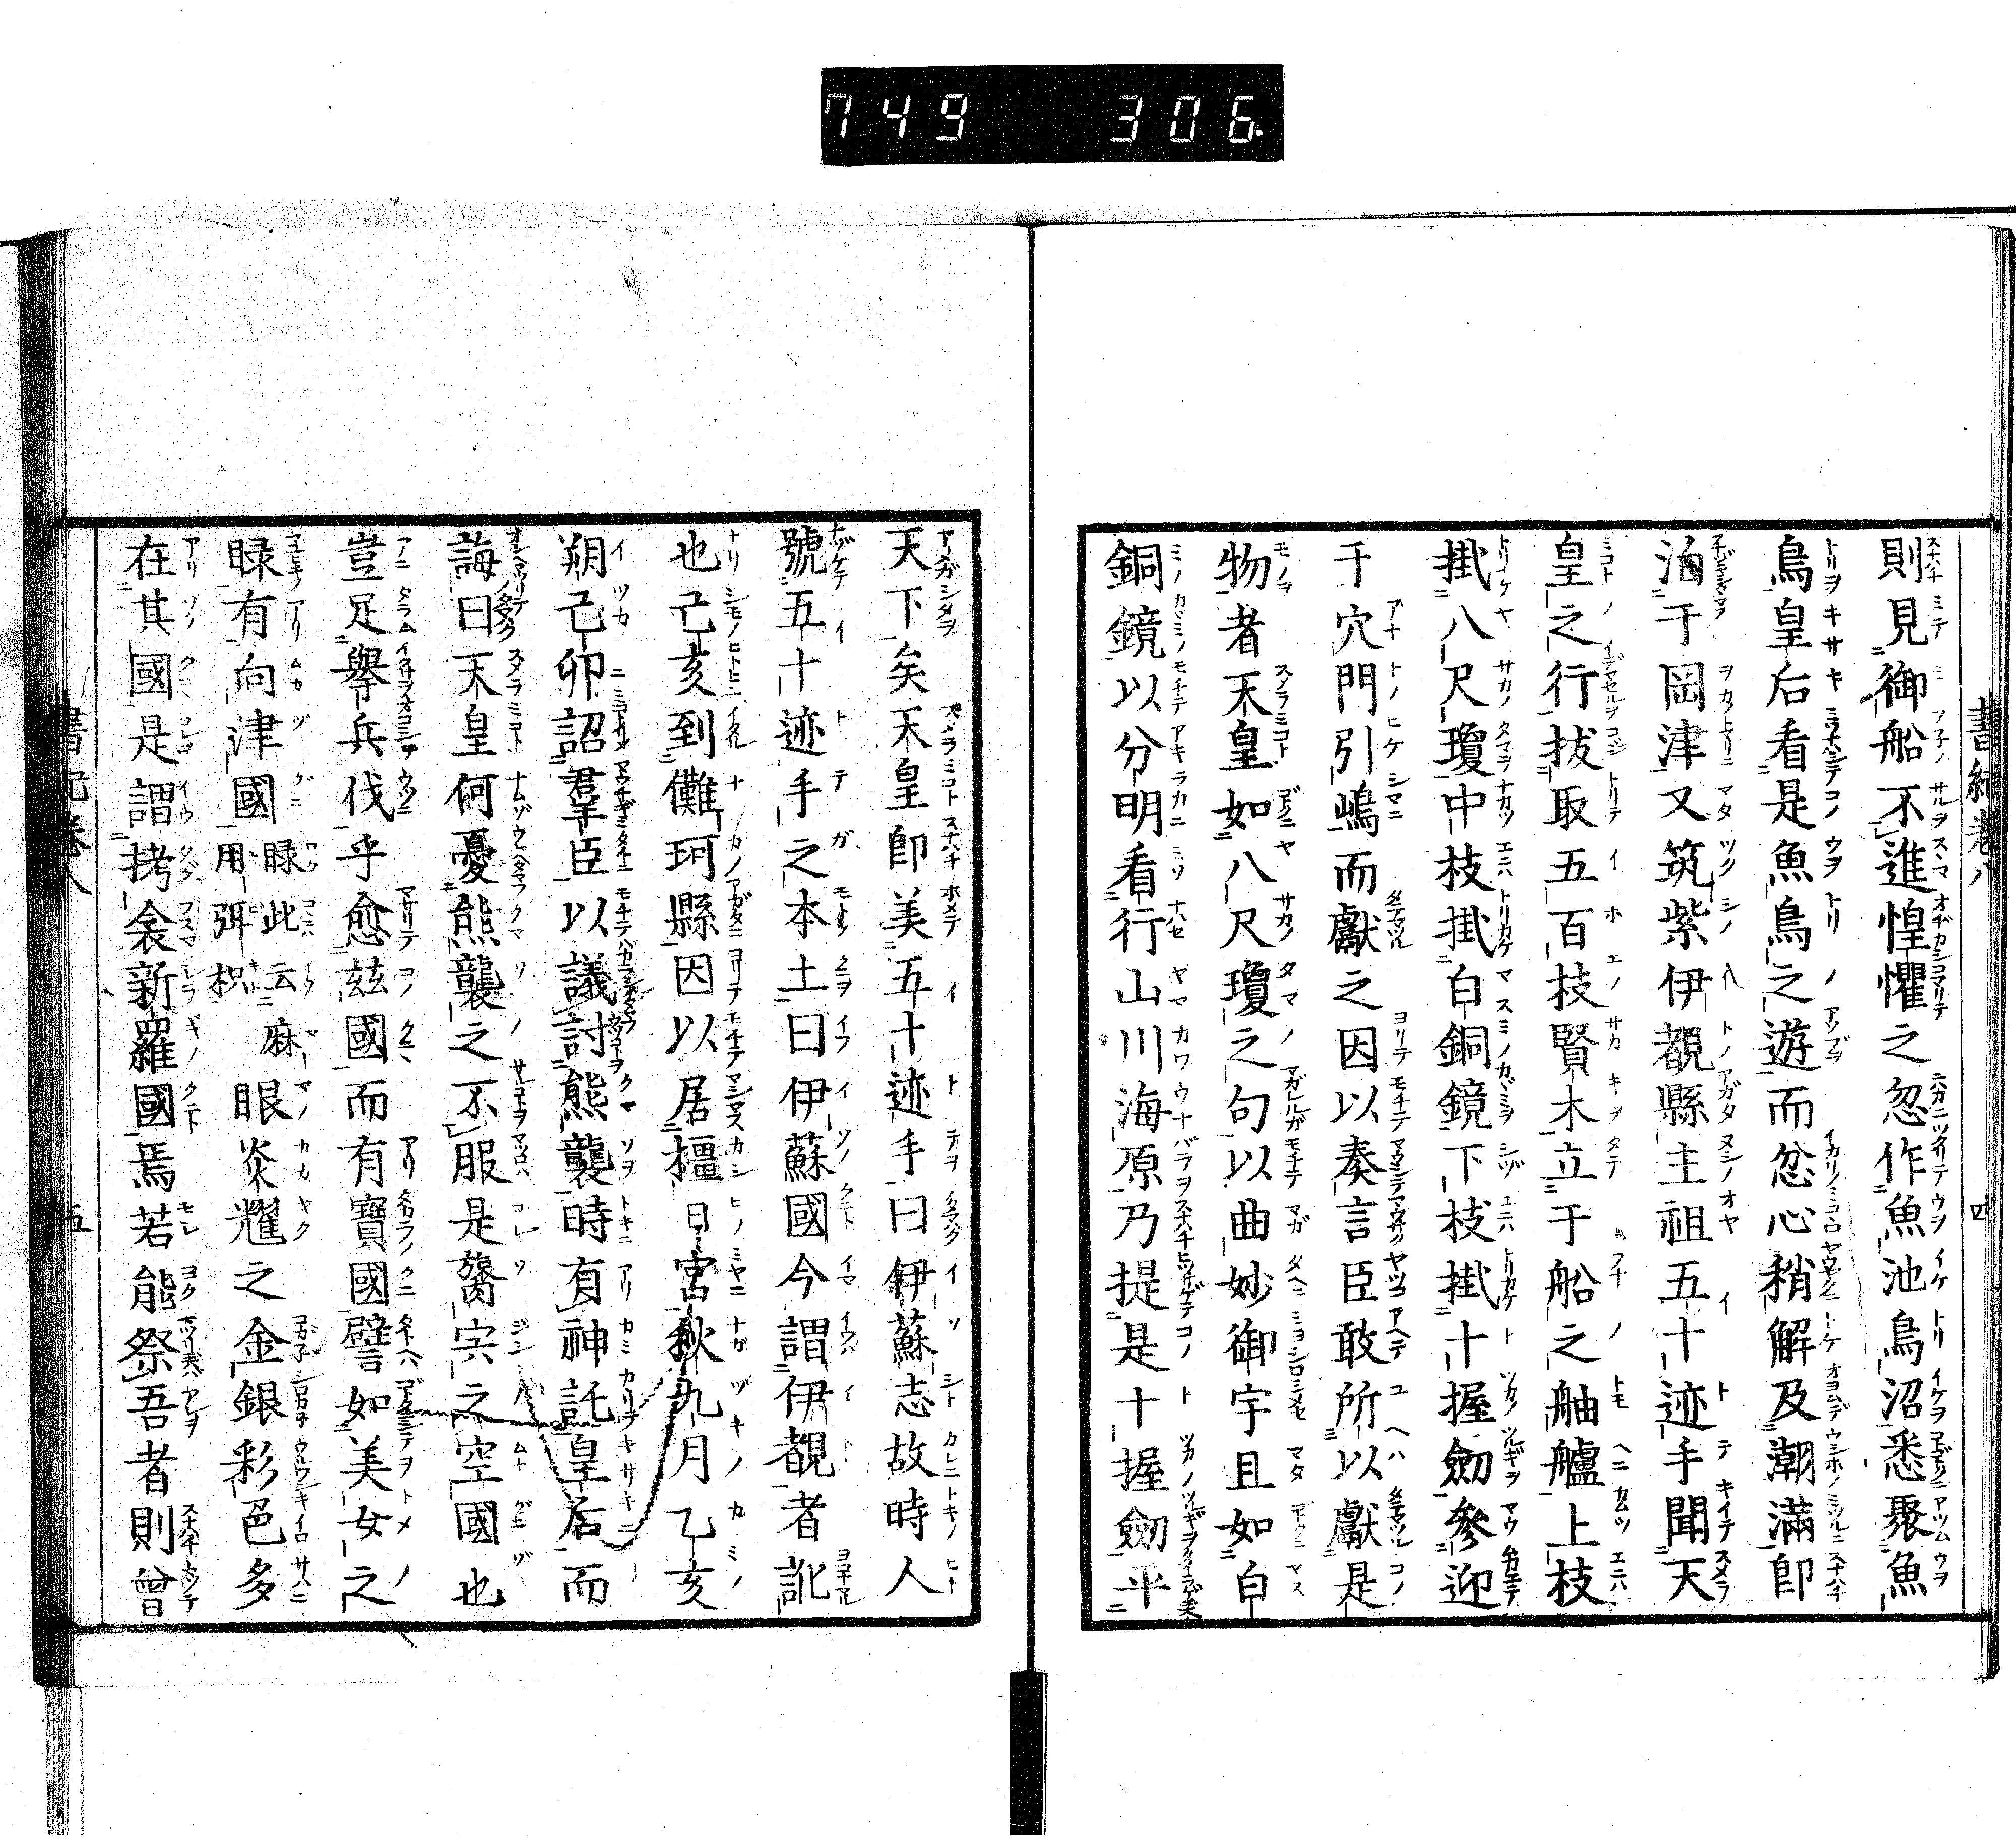 749 306.
書紀卷八 四
則見御船不進惶懼之忽作魚池鳥沼悉聚魚
鳥皇后看是魚鳥之遊而忿心稍解及潮滿即
泊于岡津又筑紫伊覩縣主祖五十迹手聞天
皇之行拔取五百枝賢木立于船之舳艫上枝
掛八尺瓊中枝掛白銅鏡下枝掛十握劒參迎
于穴門引嶋而獻之因以奏言臣敢所以獻是
物者天皇如八尺瓊之句以曲妙御宇且如白
銅鏡以分明看行山川海原乃提是十握劒平
天下矣天皇即美五十迹手曰伊蘇志故時人
號五十迹手之本土曰伊蘇國今謂伊覩者訛
也己亥到儺珂縣因以居橿日宮秋九月乙亥
朔己卯詔羣臣以議討熊襲時有神託皇后而
誨曰天皇何憂熊襲之不服是膂宍之空國也
豈足擧兵伐乎愈茲國而有寶國譬如美女之
睩有向津國睩此云麻用弭枳眼炎耀之金銀彩色多
在其國是謂栲衾新羅國焉若能祭吾者則曾
書紀卷八 五